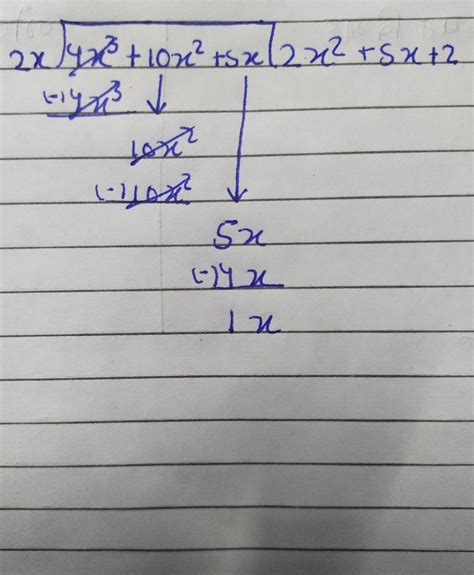 2x)4x³+10x²+5x(2x²+5x+2
(-)4x³
10x²
(-)10x²
5x
(-)4x
1x